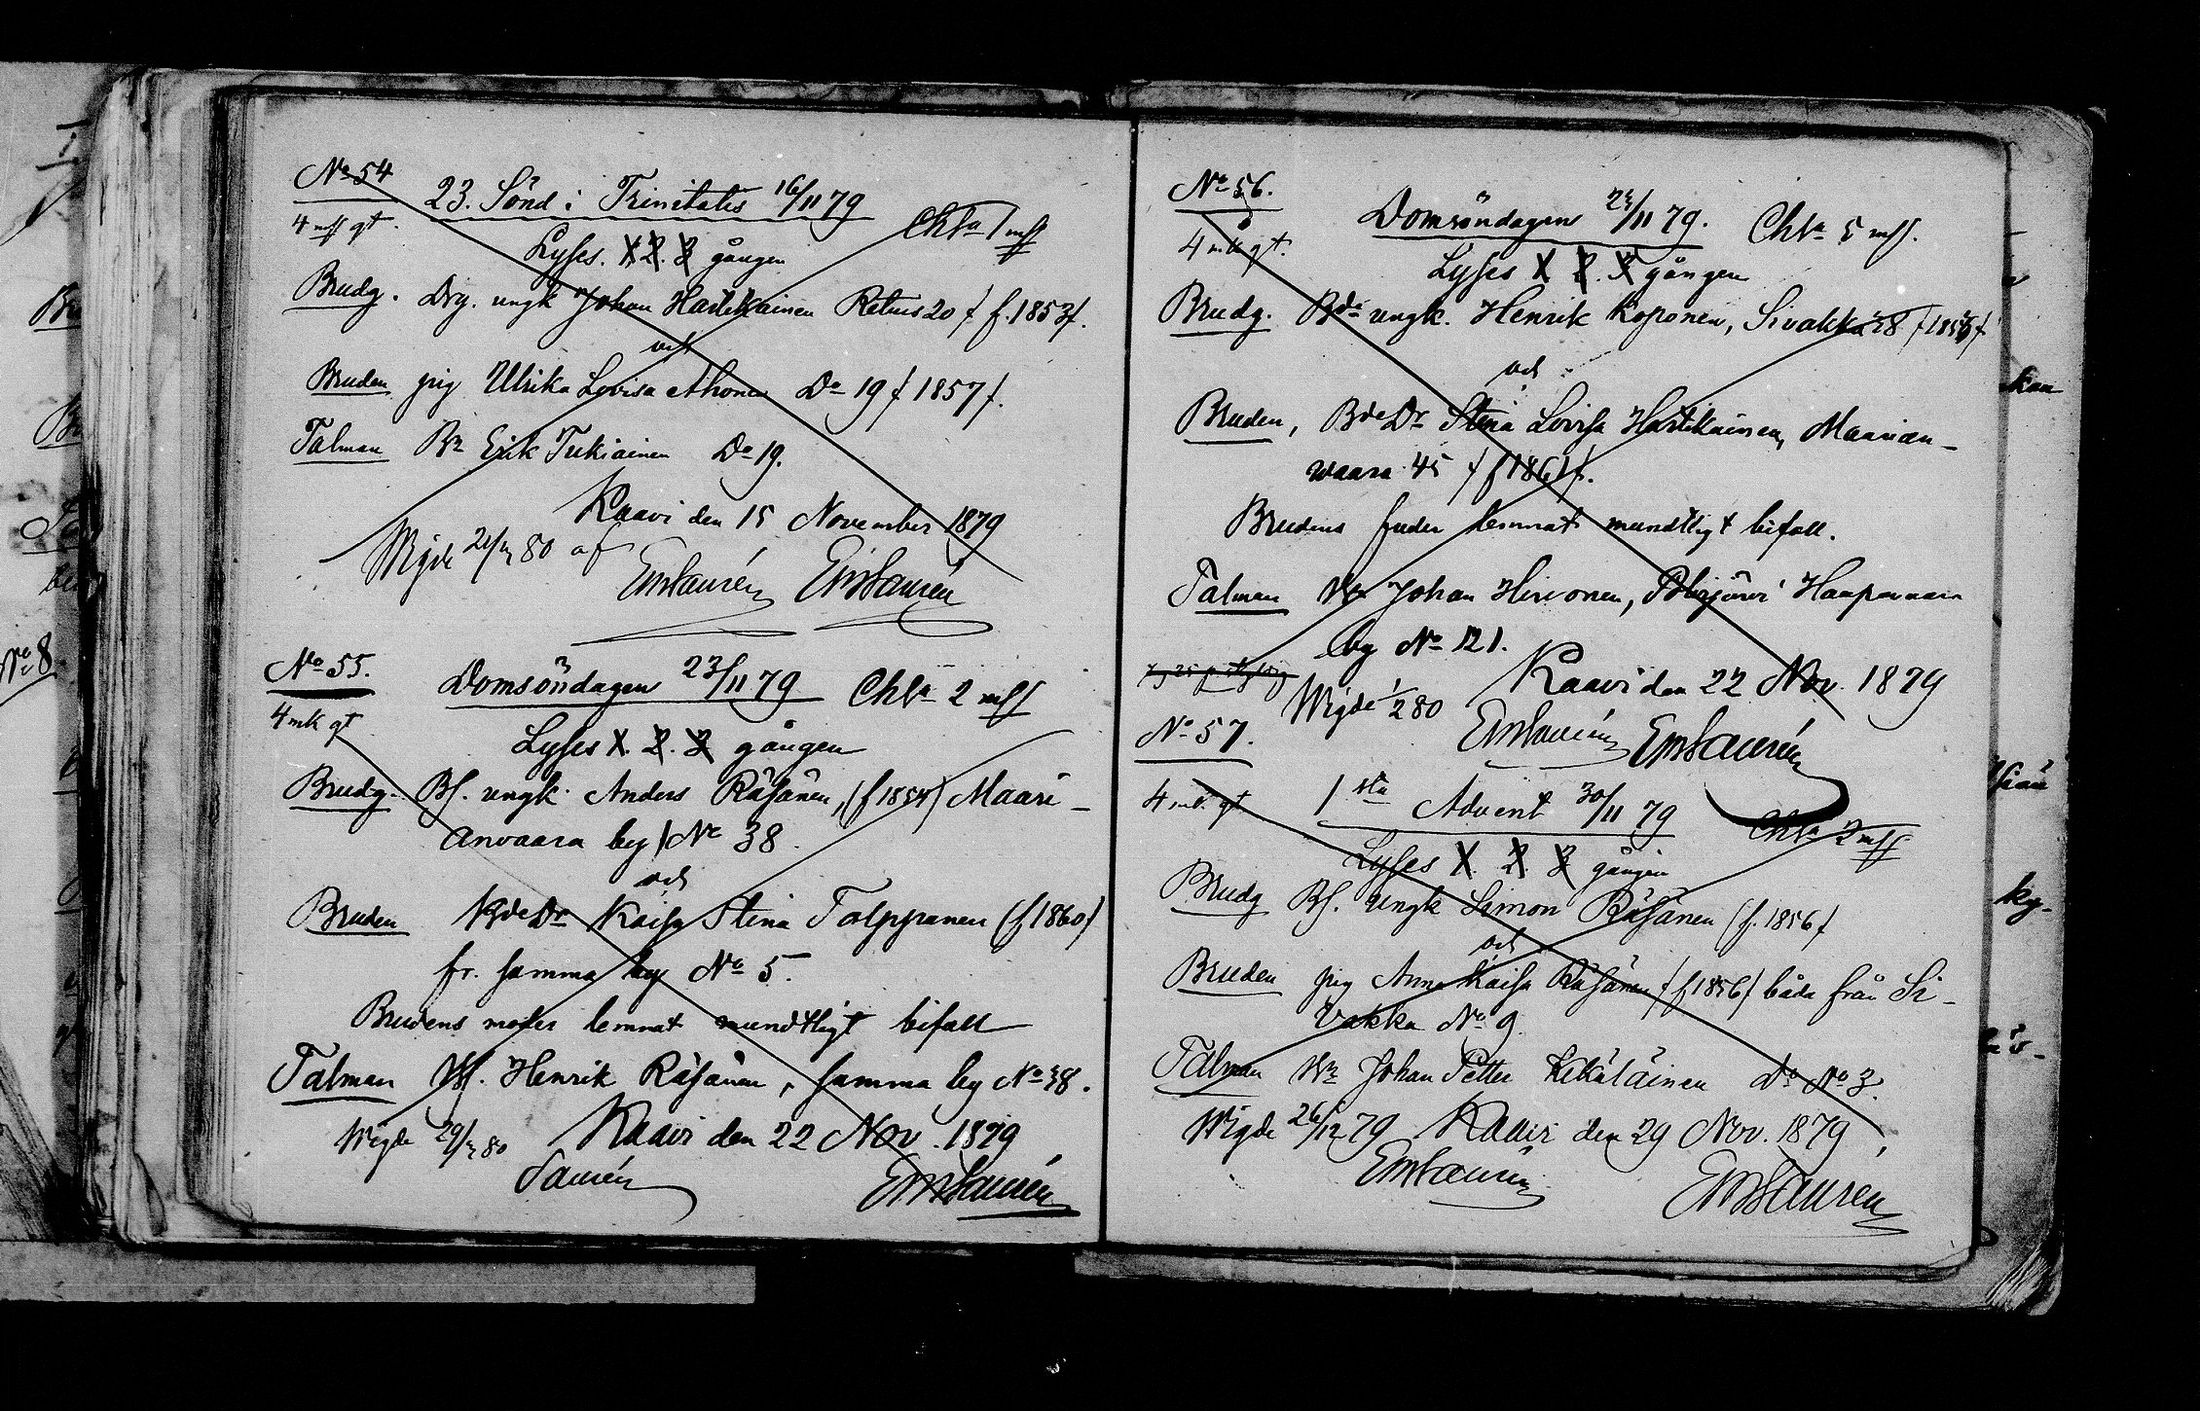 No 54
23. Sönd i Trinitatis 16/11 79
4 mk gt. Chla 1 mk
Lyses. 1. 2. 3 gången
Brudg. Drg. ungk Johan Hartikainen Retus 20 / f. 1853/.
och
Bruden pig Ulrika Lovisa Ahonen Do 19 / 1857 /.
Talman Bn Erik Tukiainen Do 19.
Kaavi den 15 November 1879
Wigde 80 af
EmSaurén EmSaurén
No 55.
Domsöndagen 23/11 79 Chla 2 mk
4 mk gt
Lyses 1. 2. 3 gången
Brudg. Bf. ungk. Anders Räsänen, (f 1854) Maari-
anvaara by No 38.
och
Bruden BdeDr Kaisa Stina Talppanen (f 1860)
fr. samma by No 5.
Brudens moder lemnat mundtligt bifall
Talman Henrik Räsänen, samma by No 38.
Wigde 80 Kaavi den 22 Nov. 1879
Saurén EmSaurén
No 56.
Domsöndagen 23/11 79. Chla 5 mk.
4 mk gt.
Lyses 1 2. 3 gången
Brudg. Bde ungk. Henrik Koponen, Sivakka 28
och
Bruden, BdeDr Stina Lovisa Hartikainen, Maarian-
waara 45 / f 1861 /.
Brudens fader lemnat mundtligt bifall.
Talman Johan Hirvonen, Haapovaara
by No 121.
Kaavi den 22 Nov. 1879
Wigde 1/2 80
EmSaurén EmSaurén
No 57.
4 mk gt 1sta Advent 30/11 79 Chla 2 mk
Lyses 1. 2. 3 gången
Brudg Bf. ungk Simon Räsänen (f. 1856/
och
Bruden pig Anna Kaisa Räsänen / f 1856 / båda från Si-
vakka No 9.
Talman Johan Petter Kekäläinen Do No 3.
Wigde 26/12 79 Kaavi den 29 Nov. 1879
EmSaurén EmSaurén